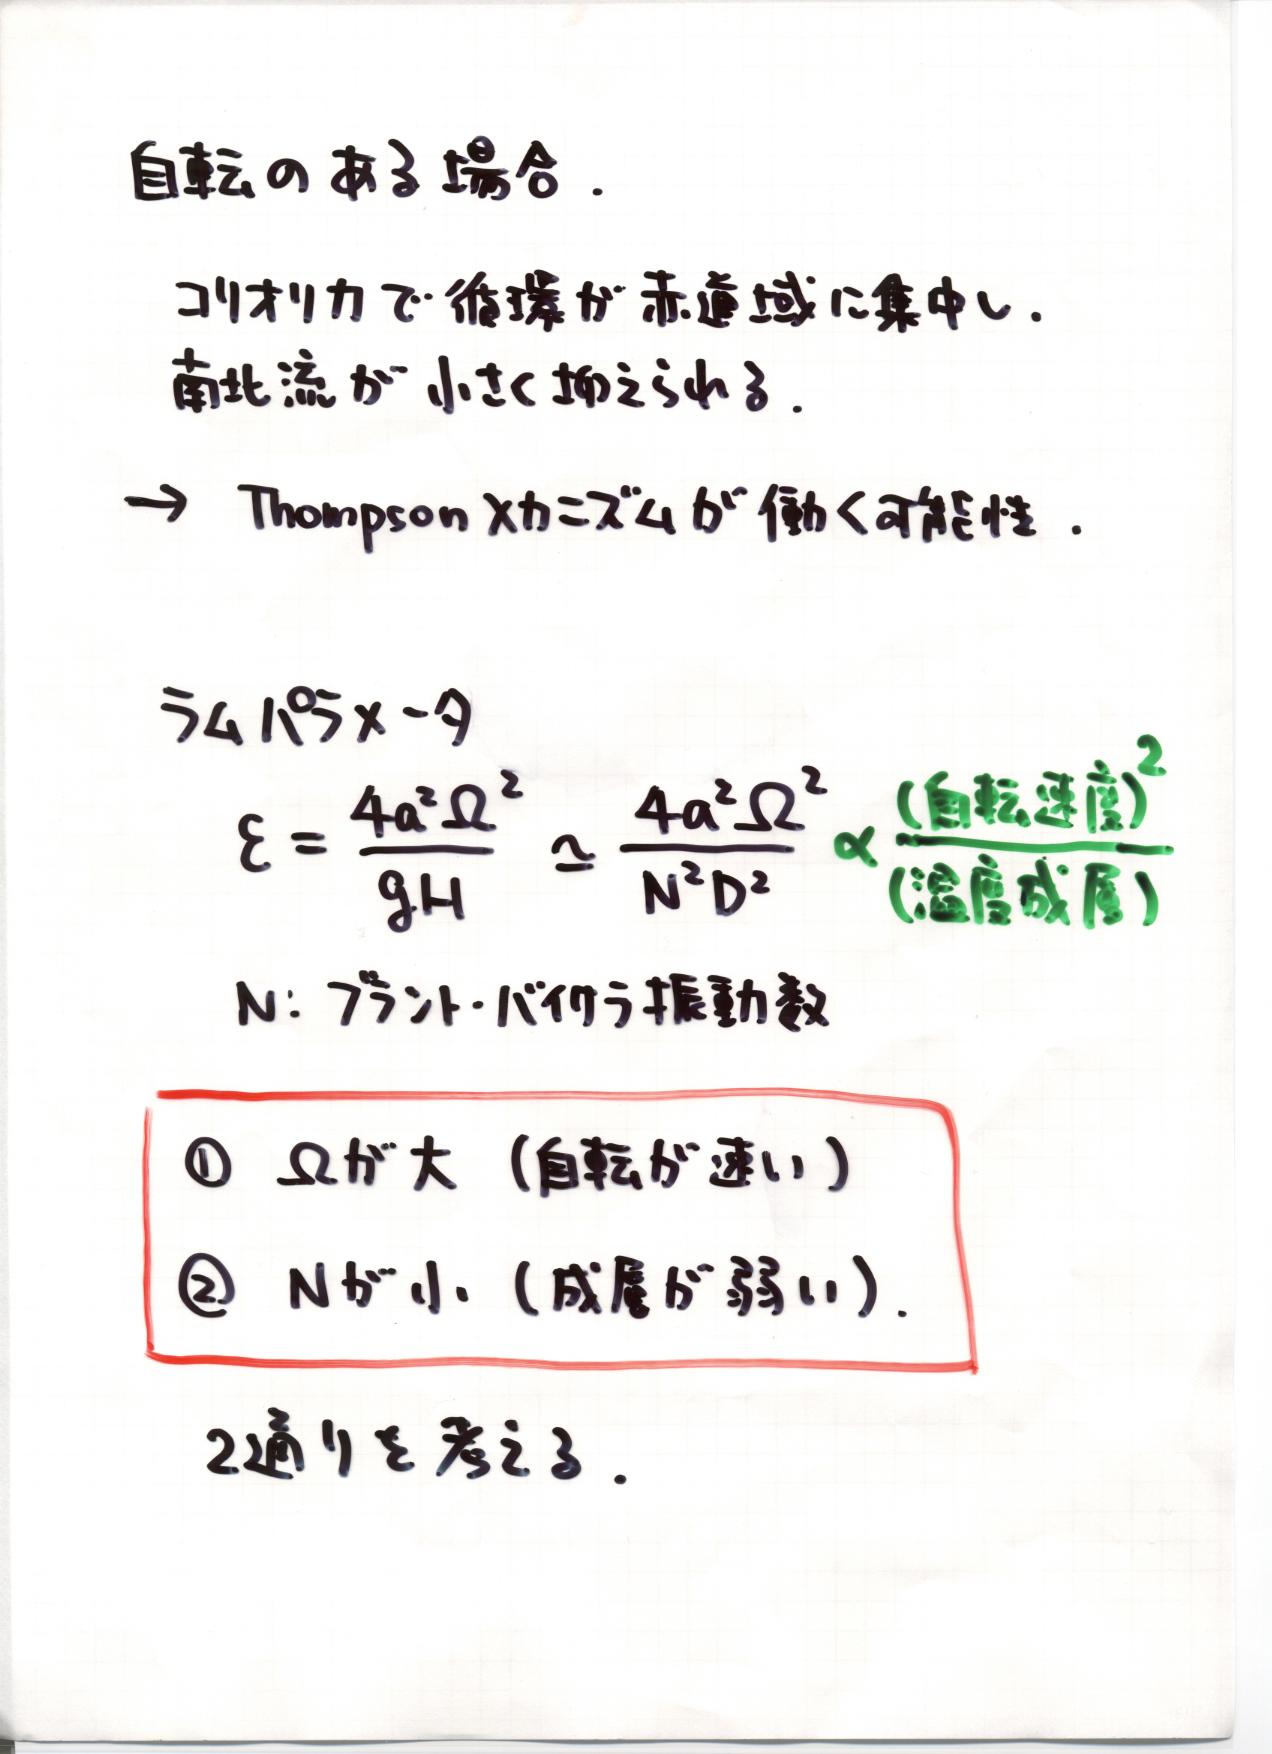 自転のある場合.
コリオリ力で循環が赤道域に集中し.
南北流が小さく抑えられる.
→ Thompsonメカニズムが働く可能性.
ラムパラメータ
ε = 4a²Ω² / gH ≃ 4a²Ω² / N²D² ∝ (自転速度)² / (温度成層)
N: ブラント・バイサラ振動数
① Ωが大 (自転が速い)
② Nが小 (成層が弱い).
2通りを考える.